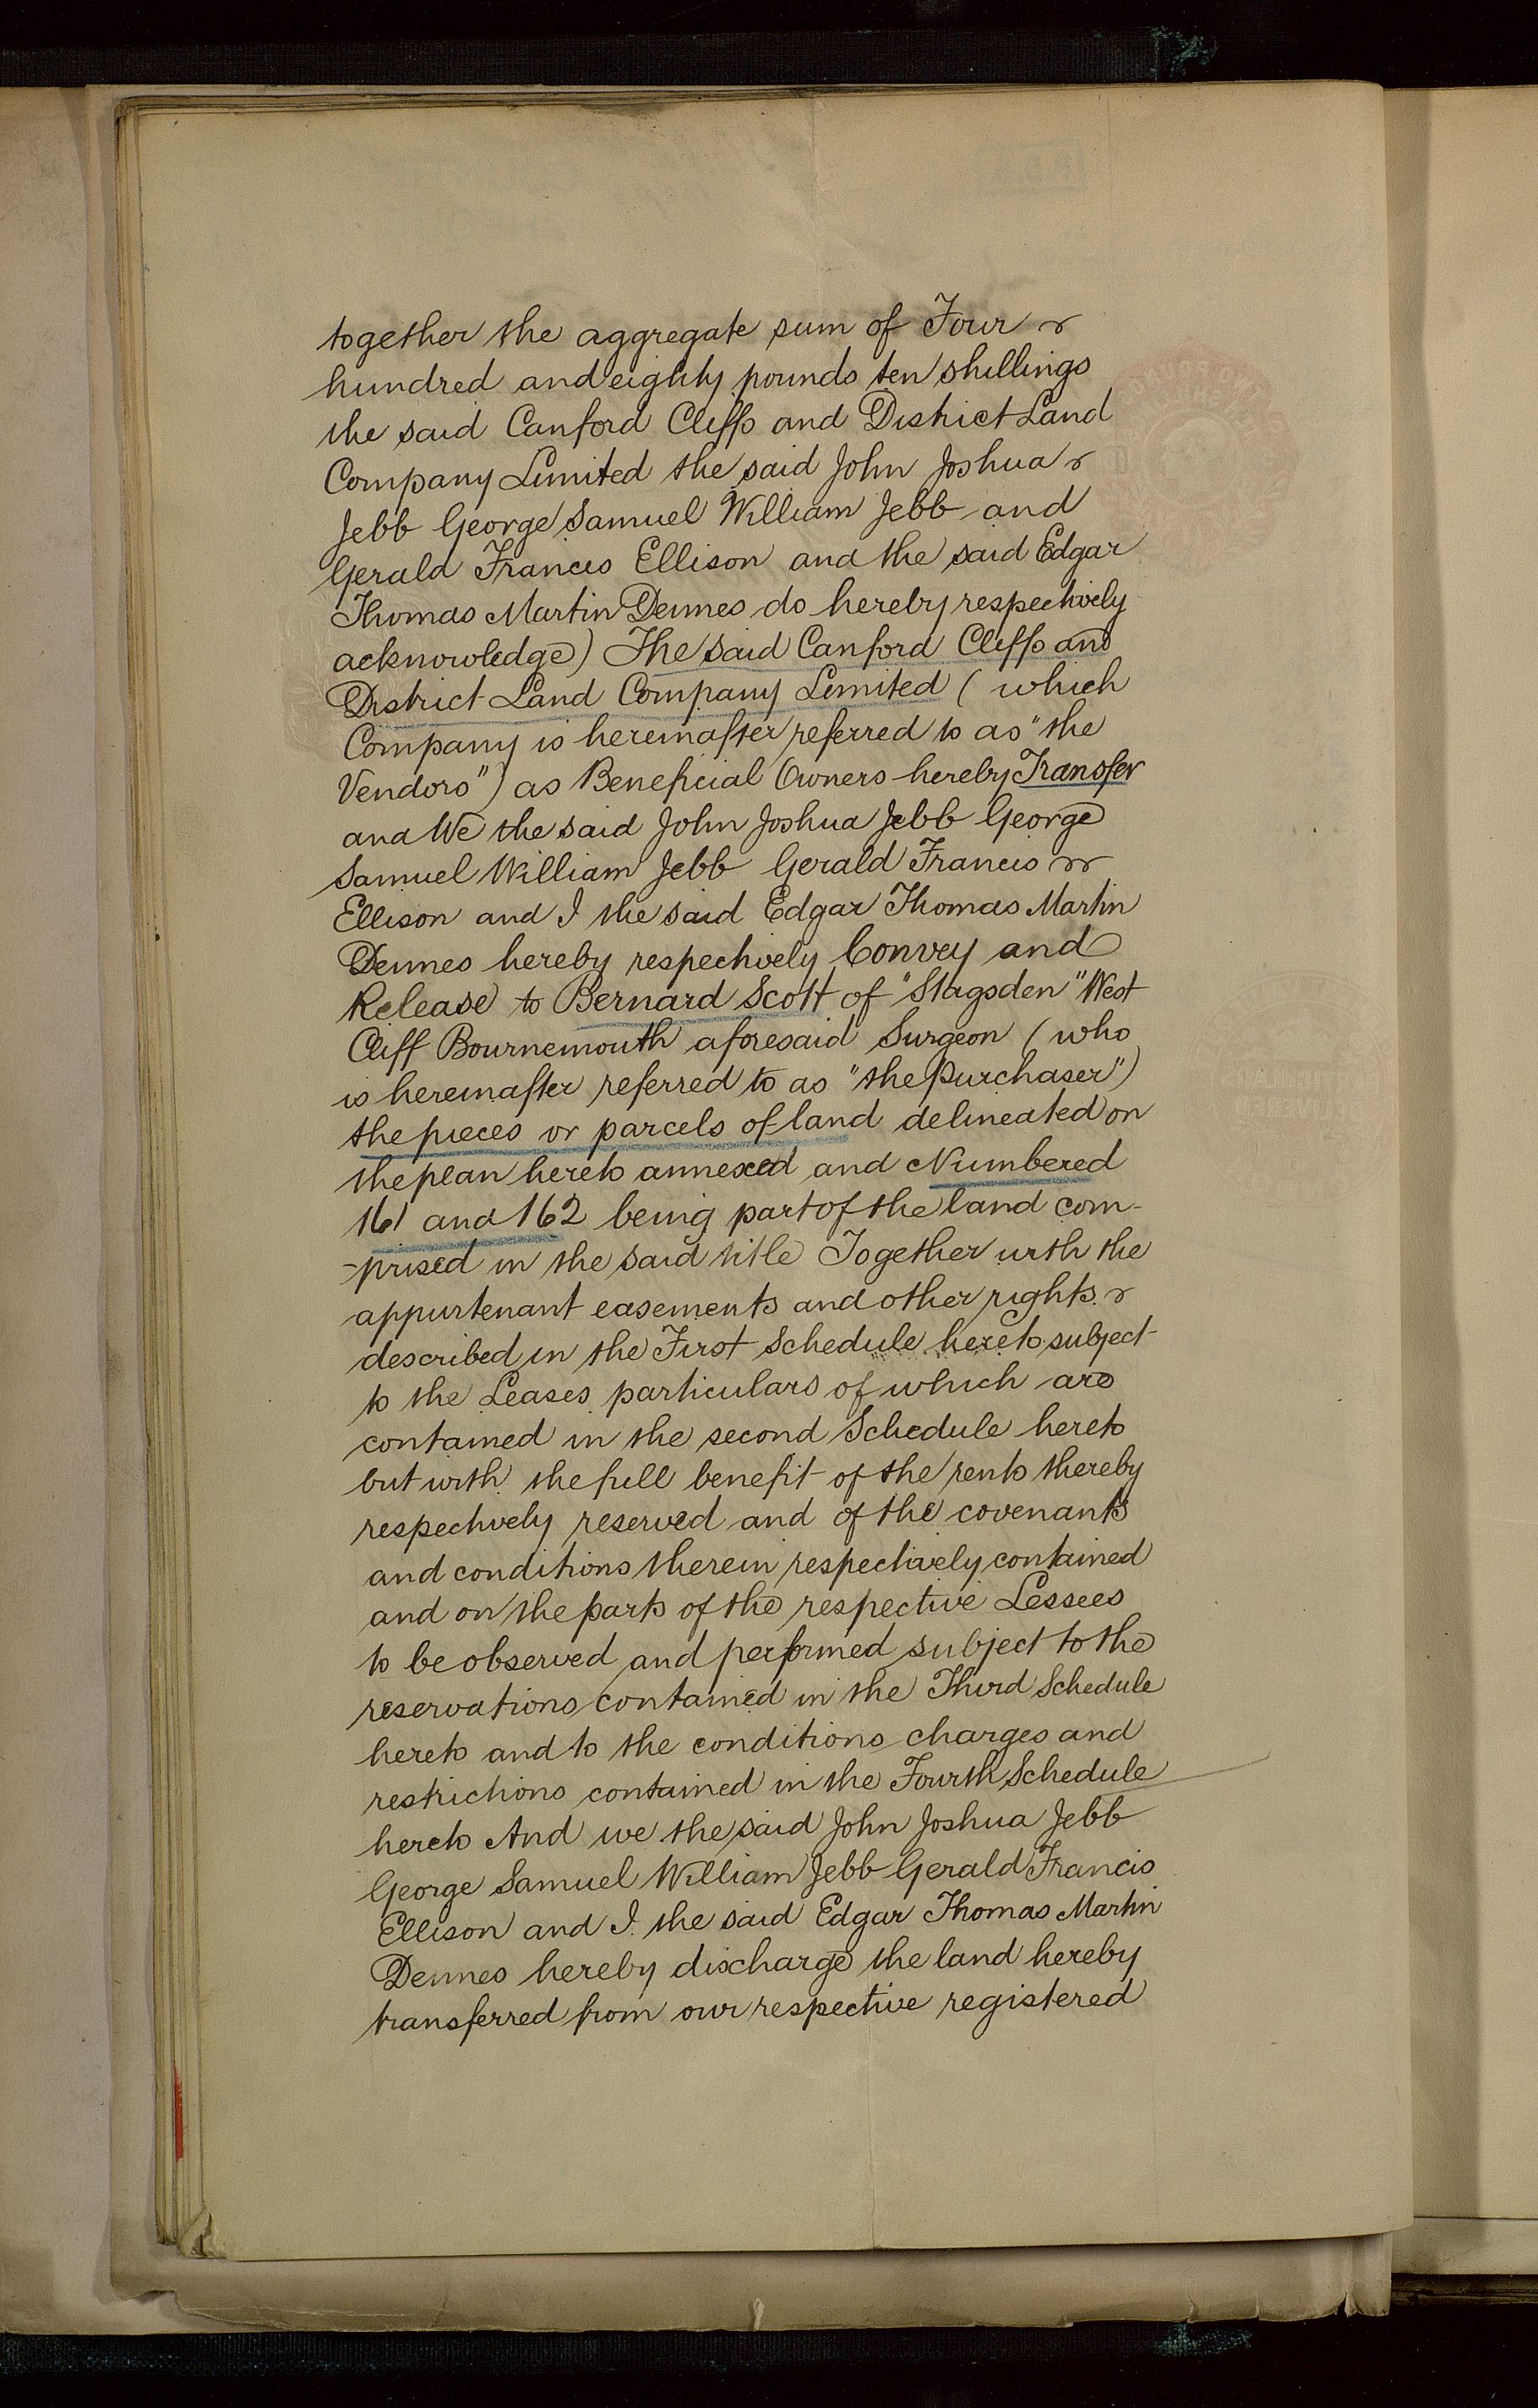 together the aggregate sum of Four
hundred and eighty pounds ten shillings
the said Canford Cliffs and District Land
Company Limited the said John Joshua
Jebb George Samuel William Jebb and
Gerald Francis Ellison and the said Edgar
Thomas Martin Dennes do hereby respectively
acknowledge) The said Canford Cliffs and
District Land Company Limited (which
Company is hereinafter referred to as "the
Vendors") as Beneficial Owners hereby Transfer
and We the said John Joshua Jebb George
Samuel William Jebb Gerald Francis
Ellison and I the said Edgar Thomas Martin
Dennes hereby respectively Convey and
Release to Bernard Scott of "Stagsden" West
Cliff Bournemouth aforesaid Surgeon (who
is hereinafter referred to as "the Purchaser")
the pieces or parcels of land delineated on
the plan hereto annexed and Numbered
161 and 162 being part of the land com-
-prised in the said title Together with the
appurtenant easements and other rights
described in the First Schedule hereto subject
to the Leases particulars of which are
contained in the second Schedule hereto
but with the full benefit of the rents thereby
respectively reserved and of the covenants
and conditions therein respectively contained
and on the parts of the respective Lessees
to be observed and performed subject to the
reservations contained in the Third Schedule
hereto and to the conditions charges and
restrictions contained in the Fourth Schedule
hereto And we the said John Joshua Jebb
George Samuel William Jebb Gerald Francis
Ellison and I the said Edgar Thomas Martin
Dennes hereby discharge the land hereby
transferred from our respective registered